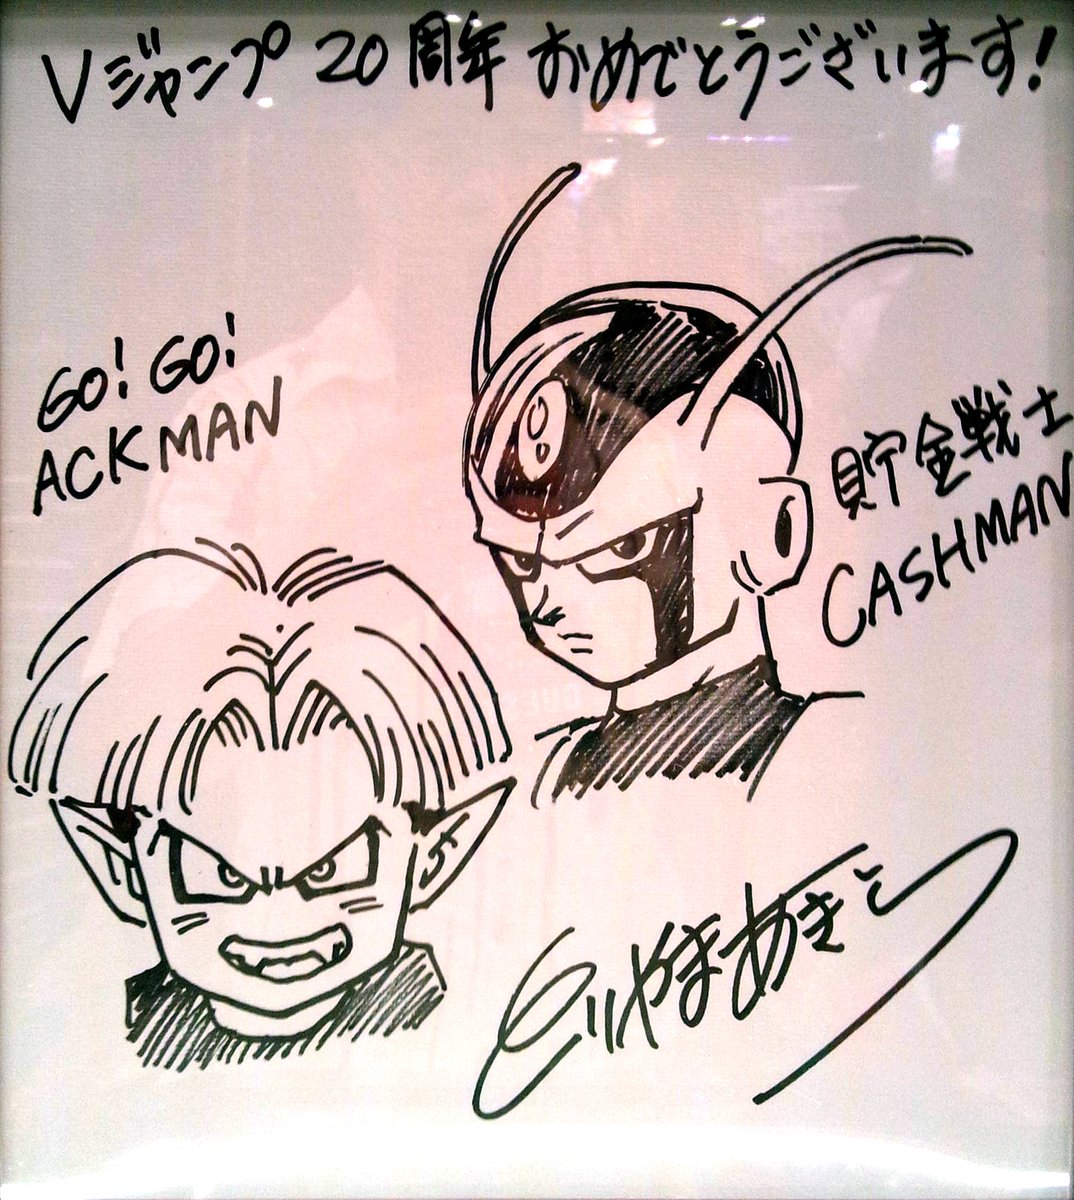 Vジャンプ 20周年 おめでとうございます!
GO! GO!
ACKMAN
貯金戦士
CASHMAN
とりやまあきら